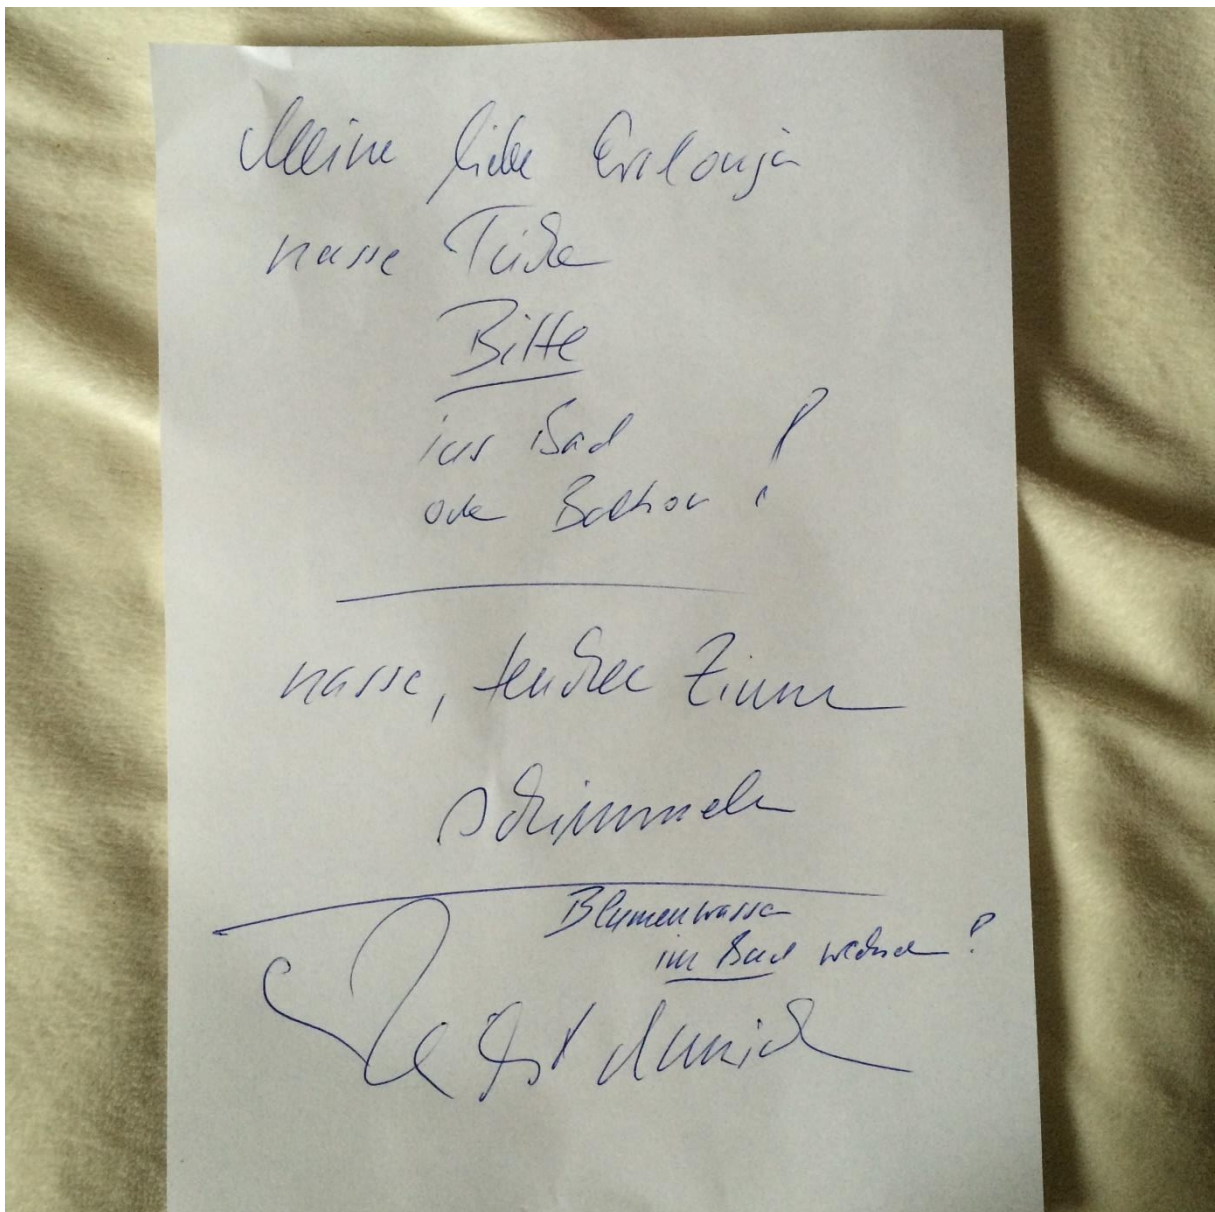 Meine liebe
nasse Tücher
Bitte
ins Bad
oder Balkon !
nasse, feuchte Zimmer
schimmeln
Blumenwasser
im Bad wechseln !